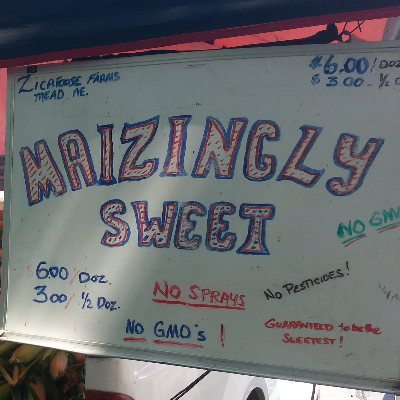 Zicafoose Farms
Mead, NE.
$6.00/Doz
$3.00 ½
MAIZINGLY
SWEET
NO GMO
6.00/Doz.
3.00/½ Doz.
No Sprays
No Pesticides!
No GMO's !
Guaranteed to be the
Sweetest!